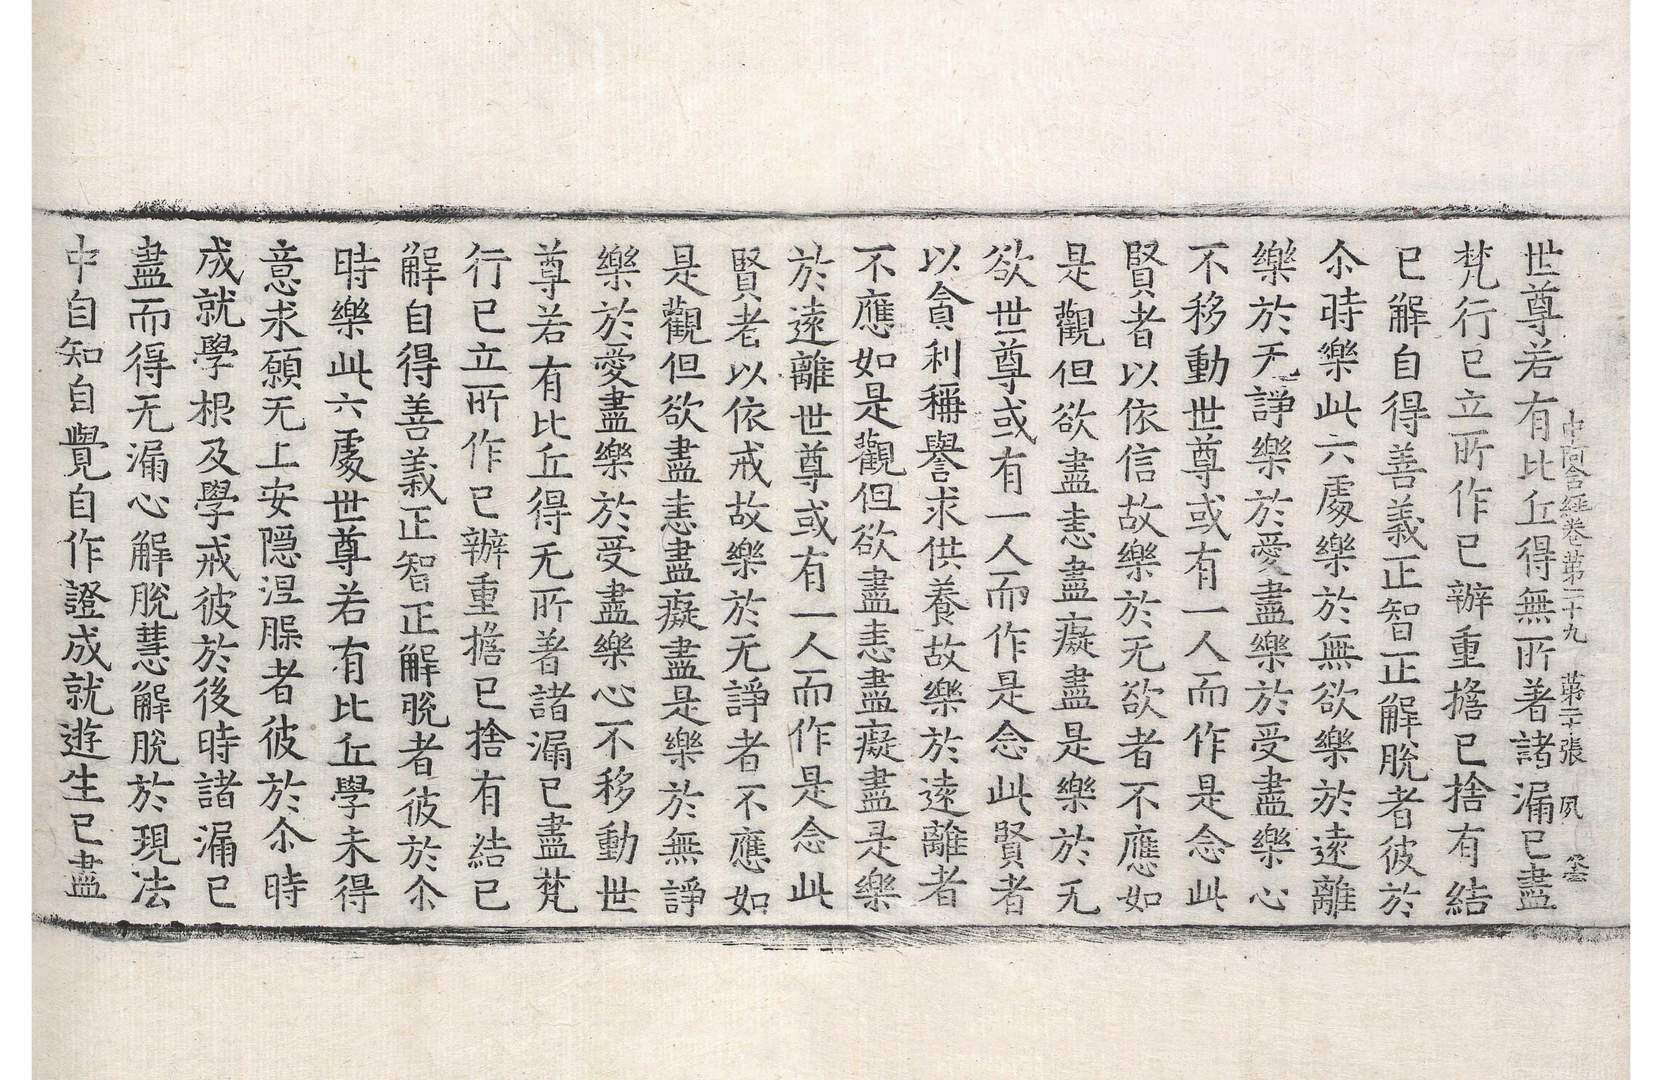 中阿含經卷第二十九 第二十張 夙
世尊若有比丘得無所著諸漏已盡
梵行已立所作已辦重擔已捨有結
已解自得善義正智正解脫者彼於
尒時樂此六處樂於無欲樂於遠離
樂於无諍樂於愛盡樂於受盡樂心
不移動世尊或有一人而作是念此
賢者以依信故樂於无欲者不應如
是觀但欲盡恚盡癡盡是樂於无
欲世尊或有一人而作是念此賢者
以貪利稱譽求供養故樂於遠離者
不應如是觀但欲盡恚盡癡盡是樂
於遠離世尊或有一人而作是念此
賢者以依戒故樂於无諍者不應如
是觀但欲盡恚盡癡盡是樂於無諍
樂於愛盡樂於受盡樂心不移動世
尊若有比丘得无所著諸漏已盡梵
行已立所作已辦重擔已捨有結已
解自得善義正智正解脫者彼於尒
時樂此六處世尊若有比丘學未得
意求願无上安隱涅槃者彼於尒時
成就學根及學戒彼於後時諸漏已
盡而得无漏心解脫慧解脫於現法
中自知自覺自作證成就遊生已盡